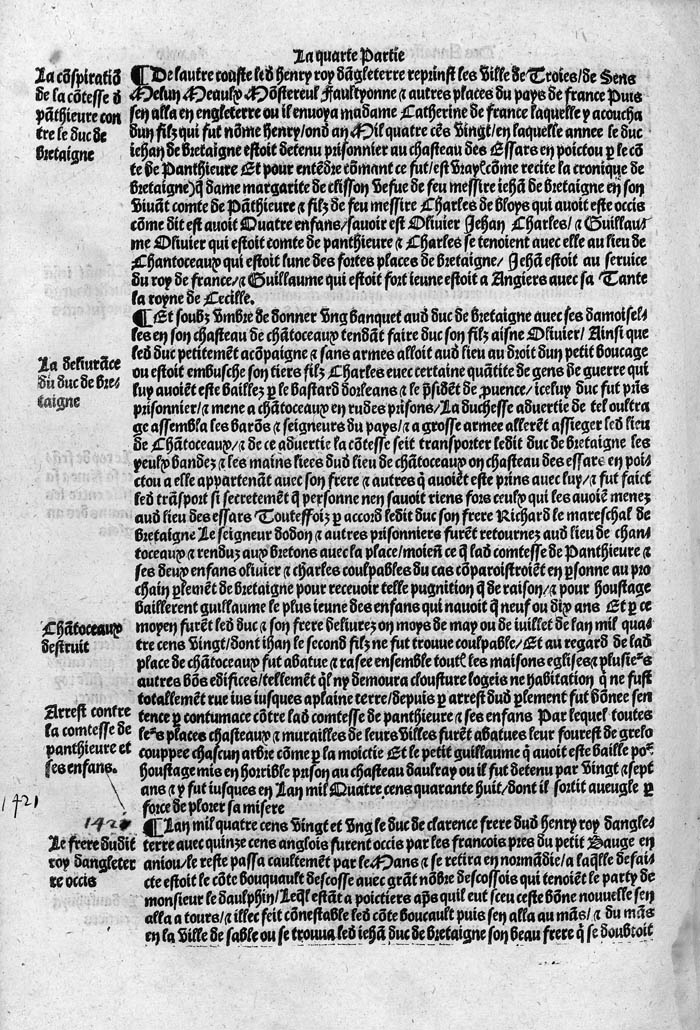 La quarte Partie
La cõspiratiõ
de la cõtesse d
pãthieure con
tre le duc de
bretaigne
¶ De lautre couste led henry roy dãgleterre reprinst les ville de Troies/de Sens
Melun Meaulx Mõstereul Faultyonne & autres places du pays de france Puis
sen alla en engleterre ou il envoya madame Catherine de france laquelle y acoucha
dun filz qui fut nõme henry/ond an Mil quatre cẽs Vingt/en laquelle annee le duc
iehan de bretaigne estoit detenu prisonnier au chasteau des Essars en poictou p le cõ
te de Panthieure Et pour entẽdre cõmant ce fut/est vray(cõme recite la cronique de
bretaigne)q̃ dame margarite de clisson vefue de feu messire iehã de bretaigne en son
viuãt comte de Pãthieure & filz de feu messire Charles de bloys qui auoit este occis
cõme dit est auoit Quatre enfans/sauoir est Olivier Jehan Charles/& Guillau/
me Olivier qui estoit comte de panthieure & Charles se tenoient avec elle au lieu de
Chantoceaux qui estoit lune des fortes places de bretaigne/ Jehã estoit au service
du roy de france/& Guillaume qui estoit fort ieune estoit a Angiers avec sa Tante
la royne de Cecille.
¶ Et soubz vmbre de donner vng banquet aud duc de bretaigne avec ses damoisel/
les en son chasteau de chãtoceaux tendãt faire duc son filz aisne Olivier/ Ainsi que
led duc petitemẽt acõpaigne & sans armes alloit aud lieu au droit dun petit boucage
ou estoit embusche son tiers filz Charles euec certaine quãtite de gens de guerre qui
luy auoiẽt este baillez p le bastard dorleans & le p̃sidẽt de prouence/iceluy duc fut prĩs
prisonnier/& mene a chãtoceaux en rudes prisons/La duchesse aduertie de tel oultra
ge assembla les barõs & seigneurs du pays/& a grosse armee allerẽt assieger led lieu
de Chãtoceaux/& de ce aduertie la cõtesse feit transporter ledit duc de bretaigne les
yeulx bandez & les mains liees dud lieu de chãtoceaux on chasteau des essars en poi/
ctou a elle appartenãt avec son frere & autres q̃ auoiẽt este prins avec luy/& fut faict
led trãsport si secretemẽt q̃ personne nen sauoit riens fors ceulx qui les auoiẽ menez
aud lieu des essars Touteffoiz p accord ledit duc son frere Richard le mareschal de
bretaigne Le seigneur dodon & autres prisonniers furẽt retournez aud lieu de chan/
toceaux & renduz aux bretons avec la place/moiẽñ ce q̃ lad comtesse de Panthieure &
ses deux enfans olivier & charles coulpables du cas cõparoistroiẽt en psonne au pro
chain plemẽt de bretaigne pour recevoir telle pugnition q̃ de raison/& pour houstage
baillerent guillaume le plus ieune des enfans qui navoit q̃ neuf ou dix ans Et p ce
moyen furẽt led duc & son frere deliurez on moys de may ou de iuillet de lan mil qua/
tre cens vingt/dont ihan le second filz ne fut trouue coulpable/Et au regard de lad
place de chãtoceaux fut abatue & rasee ensemble toutl les maisons eglises & plusieᷤs
autres bõs edifices/tellemẽt q̃l ny demoura clousture logeis ne habitation q̃ ne fust
totallemẽt rue ius iusques aplaine terre/depuis p arrest dud plement fut dõnee sen
tence p contumace cõtre lad comtesse de panthieure & ses enfans Par lequel toutes
leᷤs places chasteaux & murailles de leurs villes furẽt abatues leur fourest de grelo
couppee chascun arbre cõme p la moictie Et le petit guillaume q̃ auoit este baille poᷣ
houstage mis en horrible prison au chasteau daulray ou il fut detenu par vingt & sept
ans & y fut iusques en Lan mil Quatre cens quarante huit/dont il sortit aueugle p
force de plorer sa misere
La deliurãce
du duc de bre-
taigne
Chãtoceaux
destruit
Arrest contre
la comtesse de
panthieure et
ses enfans.
1421
142
Le frere dudit
roy dangleter
re occis
¶ Lan mil quatre cens vingt et vng le duc de clarence frere dud henry roy dangle/
terre avec quinze cens anglois furent occis par les francois pres du petit Bauge en
aniou/le reste passa caultemẽt par le Mans & se retira en normãdie/a laq̃lle defai/
cte estoit le cõte bouquault descosse avec grãt nõbre descossois qui tenoiẽt le party de
monsieur le daulphin/Leq̃l estãt a poictiers aps̃ quil eut sceu ceste bõne nouuelle sen
alla a tours/& illec feit cõnestable led cõte boucault puis sen alla au mãs/& du mãs
en la ville de sable ou se trouua led iehã duc de bretaigne son beau frere q̃ se doubtoit